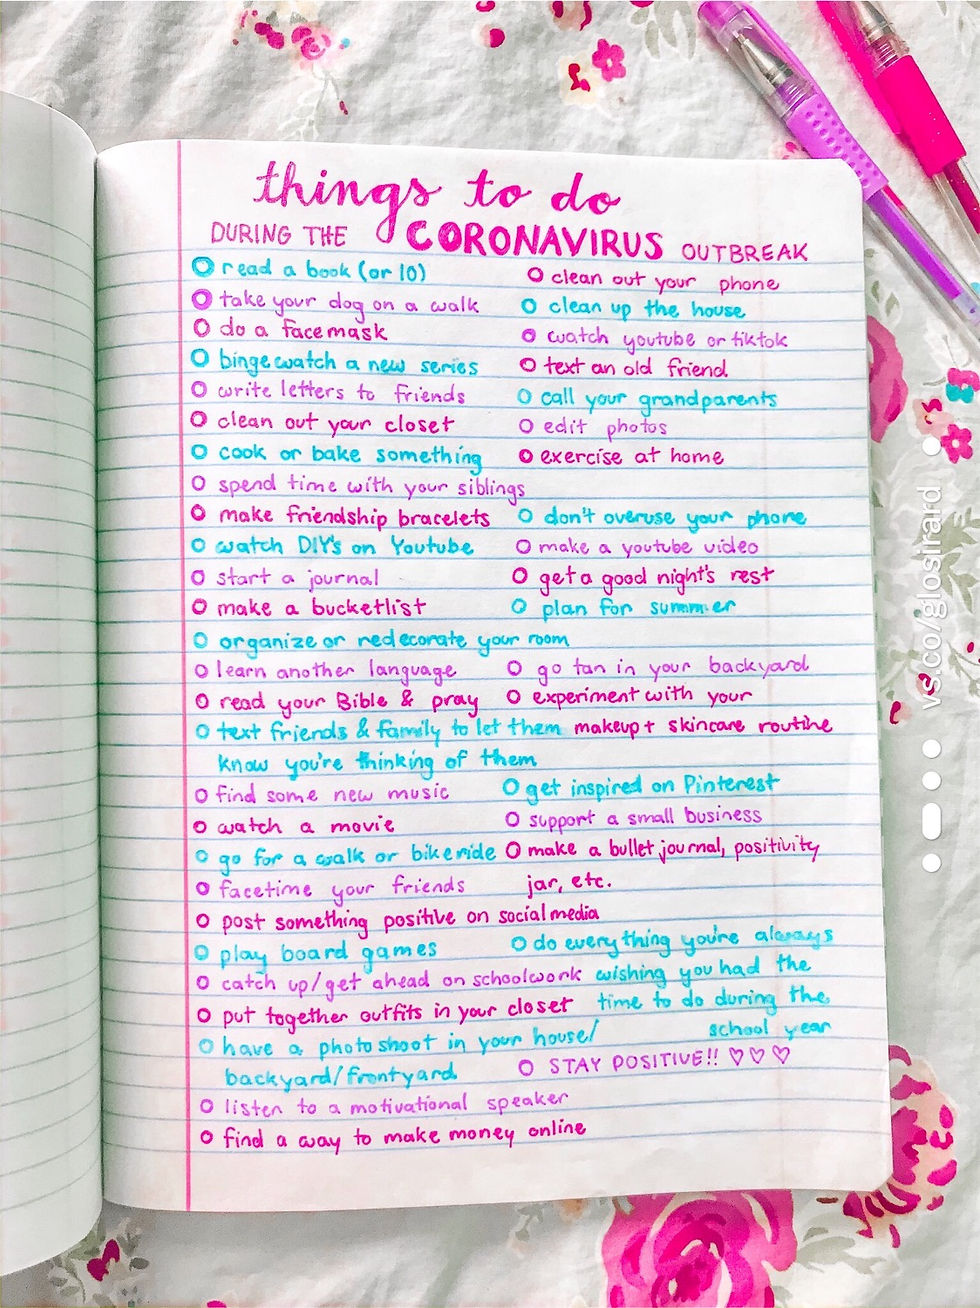 things to do
DURING THE CORONAVIRUS OUTBREAK
read a book (or 10)
take your dog on a walk
do a facemask
binge watch a new series
write letters to friends
clean out your closet
cook or bake something
spend time with your siblings
make friendship bracelets
watch DIY's on Youtube
start a journal
make a bucketlist
organize or redecorate your room
learn another language
read your Bible & pray
text friends & family to let them
know you're thinking of them
find some new music
watch a movie
go for a walk or bike ride
facetime your friends
post something positive on social media
play board games
catch up/get ahead on schoolwork
put together outfits in your closet
have a photo shoot in your house/
backyard/frontyard
listen to a motivational speaker
find a way to make money online
clean out your phone
clean up the house
watch youtube or tiktok
text an old friend
call your grandparents
edit photos
exercise at home
don't overuse your phone
make a youtube video
get a good night's rest
plan for summer
go tan in your backyard
experiment with your
makeup + skincare routine
get inspired on Pinterest
support a small business
make a bullet journal, positivity
jar, etc.
do everything you're always
wishing you had the
time to do during the
school year
STAY POSITIVE!! ♡♡♡
vs.co/glosirard